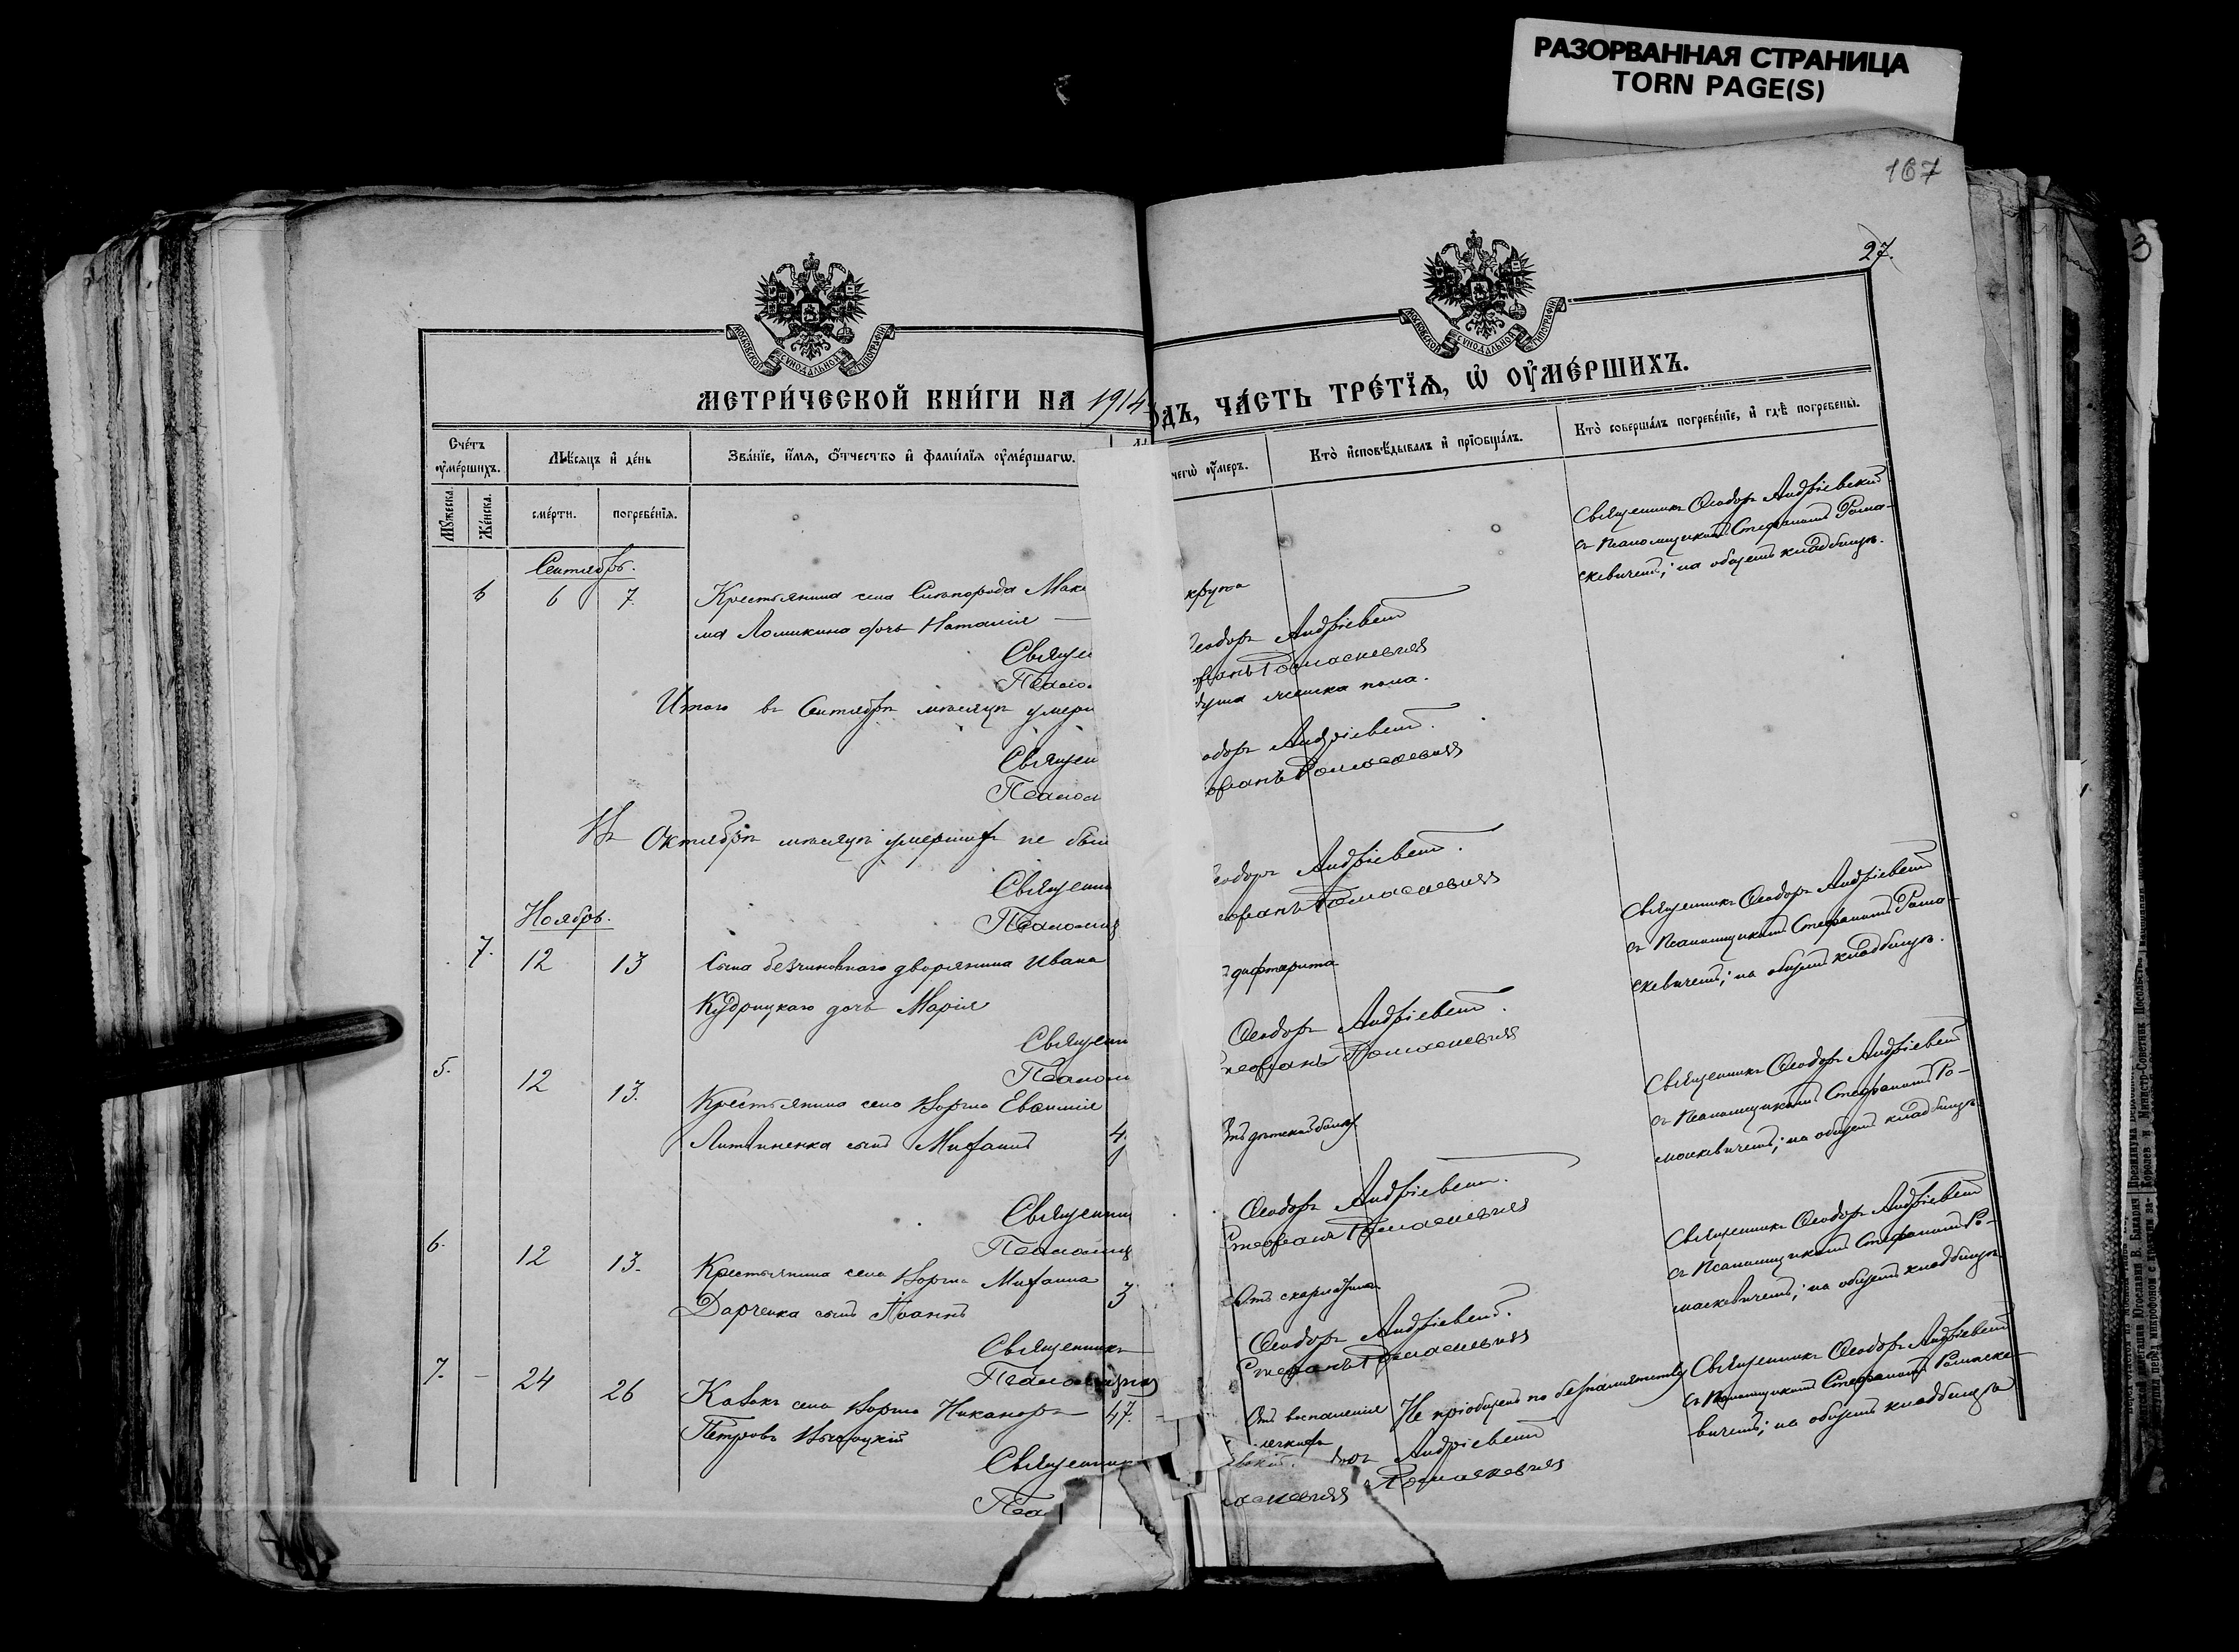 РАЗОРВАННАЯ СТРАНИЦА
TORN PAGE(S)
167
27.
МОСКОВСКОЙ СѴНОДАЛЬНОЙ ТИПОГРАФІИ
МОСКОВСКОЙ СѴНОДАЛЬНОЙ ТИПОГРАФІИ
МЕТРИ́ЧЕСКОЙ КНИ́ГИ НА 1914
ОДЪ, ЧА́СТЬ ТРЕ́ТЇѦ, Ѡ҆ ОУ҆МЕ́РШИХЪ.
Сче́тъ оу҆ме́ршихъ.
Мѣ́сяцъ и҆ де́нь
Зва́нїе, и҆́мѧ, ѻ҆́тчество и҆ фами́лїѧ оу҆ме́ршагѡ.
чегѡ̀ оу҆́меръ.
Кто̀ и҆сповѣ́дывалъ и҆ прїѡбща́лъ.
Кто̀ соверша́лъ погребе́нїе, и҆ гдѣ̀ погребены̀.
Мꙋ́жеска.
Же́нска.
сме́рти.
погребе́нїѧ.
Сентябрь.
6 6 7. Крестьянина села Мак
ма Ломикина дочь Наталія
крупа
Священникъ Ѳеодоръ Андріевскій
съ псаломщикомъ Стефаномъ Рома-
скевичемъ; на общемъ кладбищѣ.
Свяще
еодоръ Андріевскій
Псало
фанъ Ромаскевичъ
Итого въ Сентябрѣ мѣсяцѣ умер
душа женска пола.
Священ
одоръ Андріевскій.
Псалом
ефанъ Ромаскевичъ
Въ Октябрѣ мѣсяцѣ умершихъ не был
Священни
еодоръ Андріевскій.
Псаломщ
ефанъ Ромаскевичъ
Ноябрь.
7. 12 13 Сына безчиновнаго дворянина Ивана
Кудрицкаго дочь Марія
дифтерита
Священникъ Ѳеодоръ Андріевскій
съ псаломщикомъ Стефаномъ Рома-
скевичемъ; на общемъ кладбищѣ.
Священни
Ѳеодоръ Андріевскій.
Псалом
тефанъ Ромаскевичъ
5. 12 13. Крестьянина села Ворона Евѳимія
Литвиненка сынъ Михаилъ 4.
Священникъ Ѳеодоръ Андріевскій
съ псаломщикомъ Стефаномъ Ро-
маскевичемъ; на общемъ кладбищѣ.
Священни
Ѳеодоръ Андріевскій.
Псаломщ
Стефанъ Ромаскевичъ
6. 12 13. Крестьянина села Ворона Михаила
Дарченка сынъ Іоаннъ 3
Отъ скарлатины
Священникъ Ѳеодоръ Андріевскій
съ псаломщикомъ Стефаномъ Ро-
маскевичемъ; на общемъ кладбищѣ
Священникъ
Ѳеодоръ Андріевскій.
Псаломщикъ
Стефанъ Ромаскевичъ
7. – 24 26 Козакъ села Ворона Никаноръ 47.
Петровъ Высоцкій
Отъ воспаленія
легкихъ
Не пріобщенъ по безпамятству
Священникъ Ѳеодоръ Андріевскій
съ псаломщикомъ Стефаномъ Ромаске-
вичемъ; на общемъ кладбищѣ
Священникъ
доръ Андріевскій
Пса
Ромаскевичъ